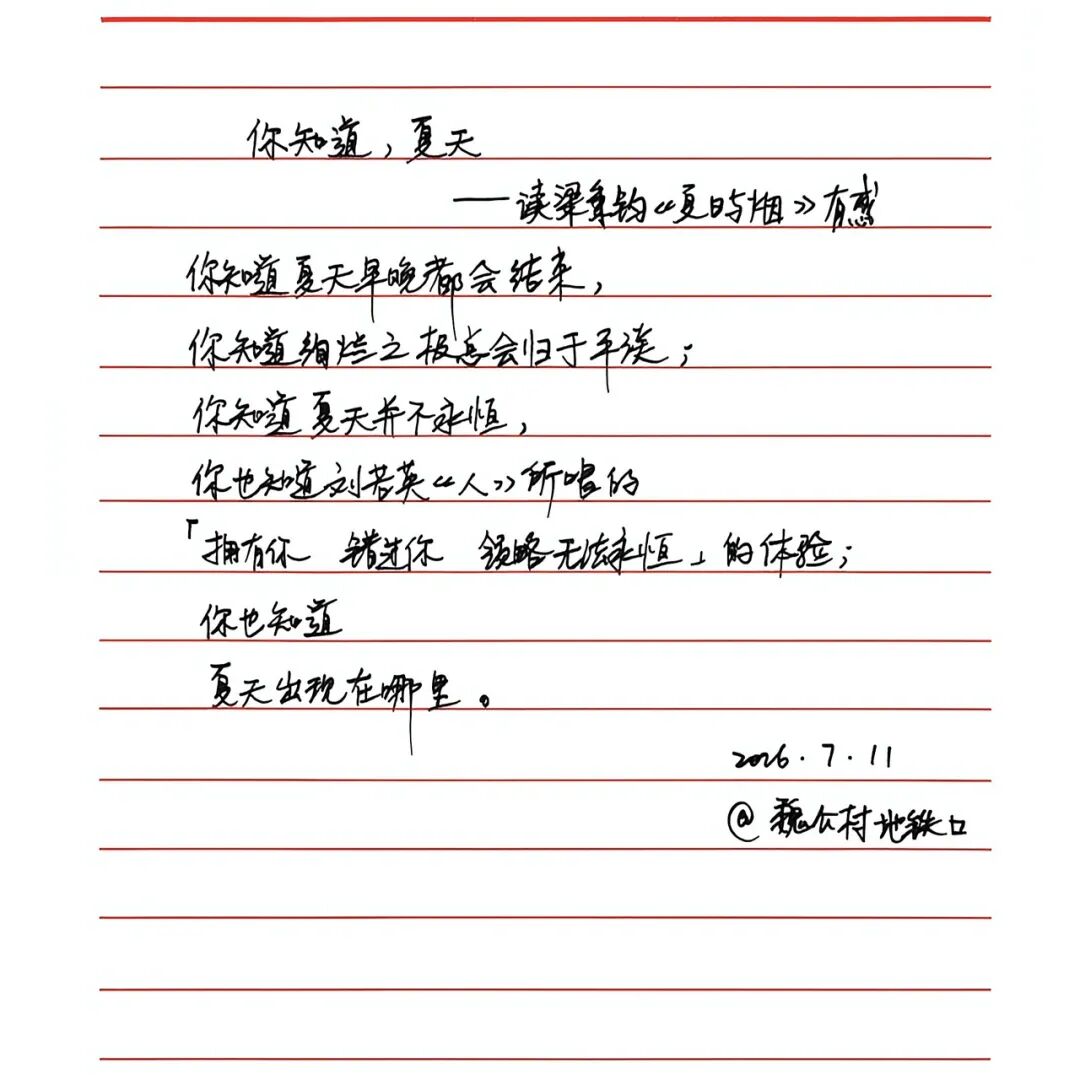 你知道，夏天
——读梁秉钧《夏日与烟》有感
你知道夏天早晚都会结束，
你知道绚烂之极总会归于平淡；
你知道夏天并不永恒，
你也知道刘若英《人》所唱的
「拥有你 错过你 领略无法永恒」的体验；
你也知道
夏天出现在哪里。
2026.7.11
@魏公村地铁口